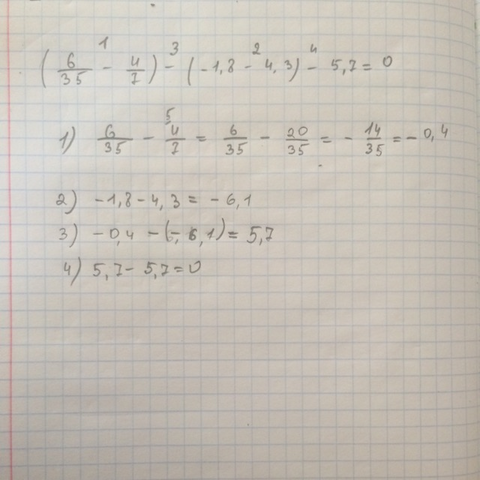 (6/35 - 4/7) - (-1,8 - 4,3) - 5,7 = 0
1) 6/35 - 4/7 = 6/35 - 20/35 = - 14/35 = - 0,4
2) -1,8 - 4,3 = - 6,1
3) -0,4 - (-6,1) = 5,7
4) 5,7 - 5,7 = 0